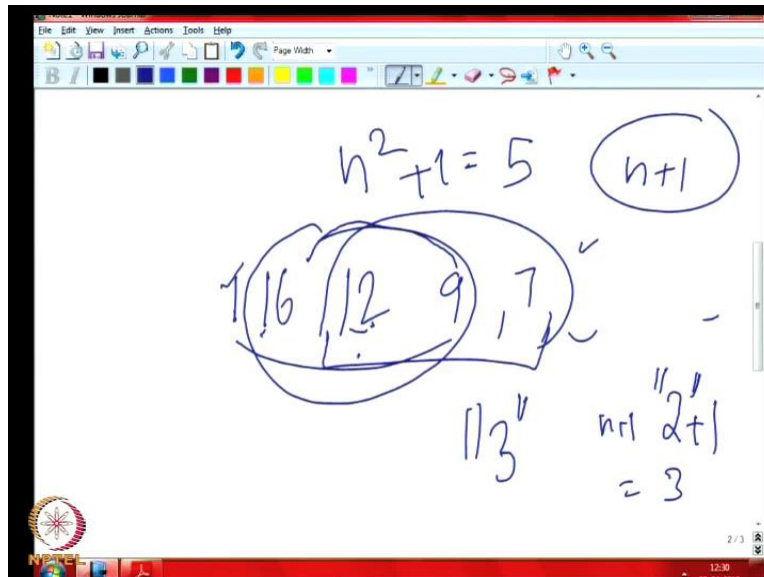 File Edit View Insert Actions Tools Help
Page Width
B I
n²+1=5 n+1
16 12 9 7
"3" n+1 "2"+1
= 3
2/3
NPTEL
12:30